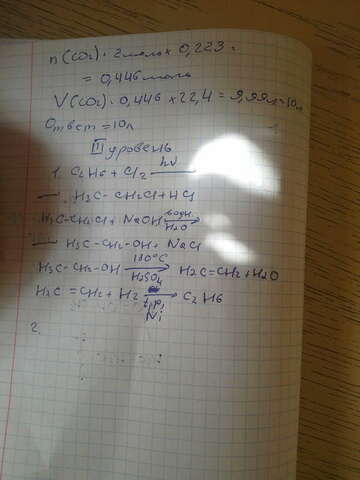 n(CO2) = 2моль × 0,223 =
= 0,446 моль
V(CO2) = 0,446 × 22,4 = 9,99л ≈ 10л
Ответ = 10л
III уровень
1. C2H6 + Cl2 hν
→ H3C-CH2Cl + HCl
H3C-CH2Cl + NaOH водн. H2O →
→ H3C-CH2-OH + NaCl
H3C-CH2-OH 180°C H2SO4 → H2C=CH2 + H2O
H2C=CH2 + H2 t, p, Ni → C2H6
2.